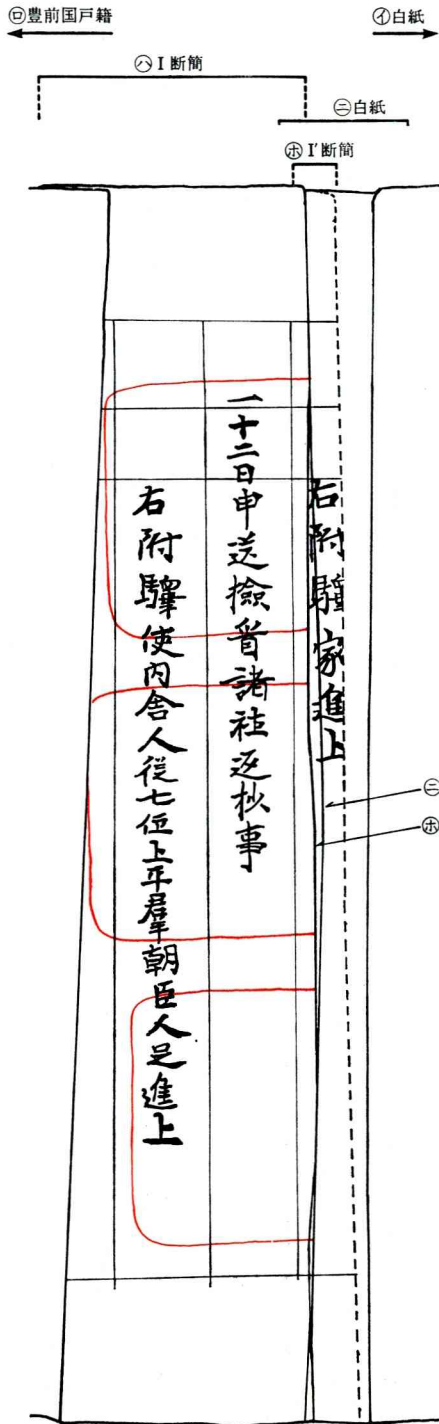 ㋺豊前国戸籍
㋑白紙
㋩Ⅰ断簡
㊁白紙
㋭Ⅰ′断簡
右附驛家進上
一十二日申送検看諸社返抄事
右附驛使内舎人従七位上平群朝臣人足進上
㊁
㋭